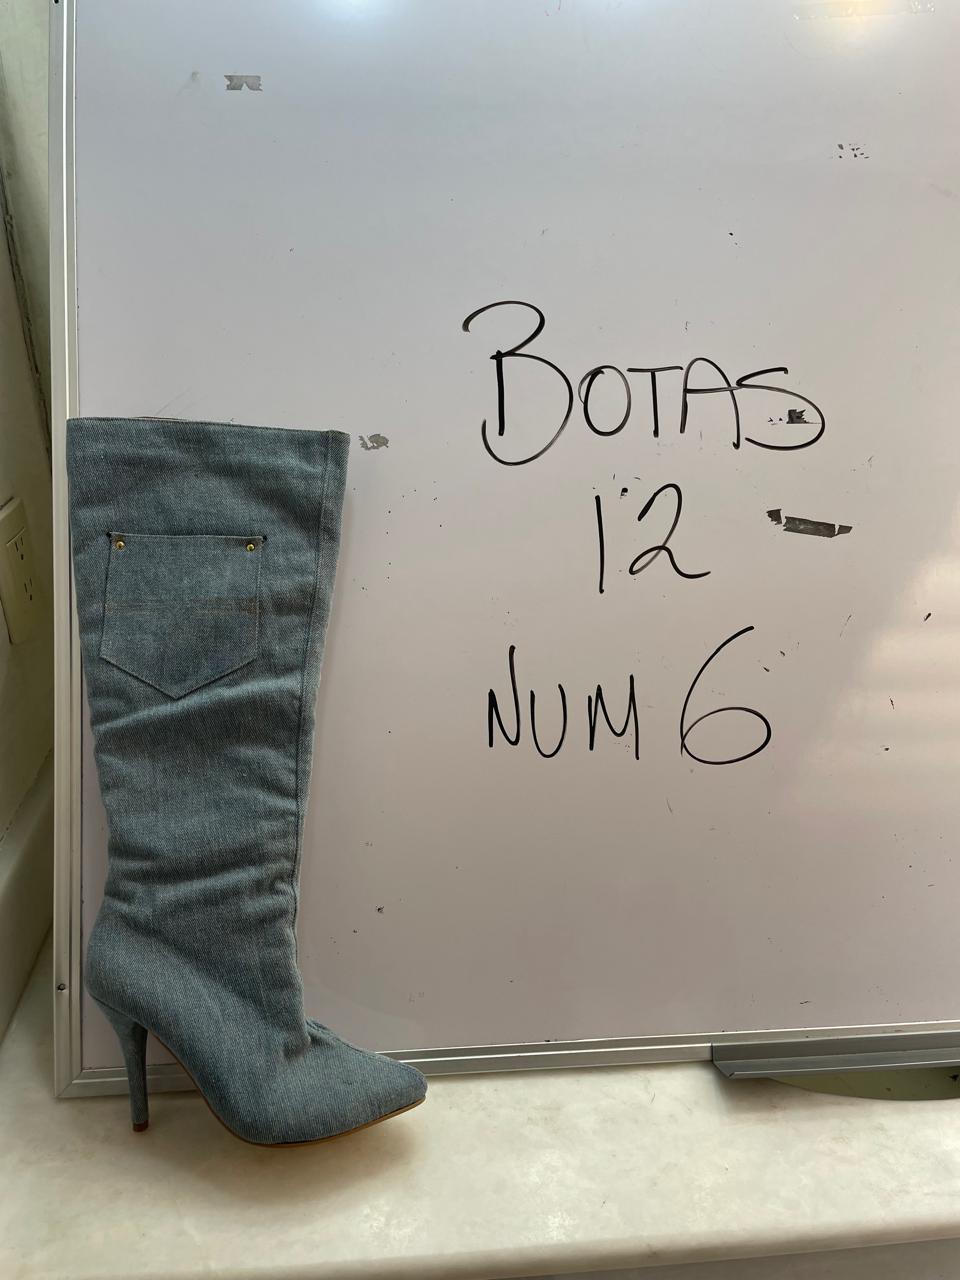 BOTAS
12
NUM 6